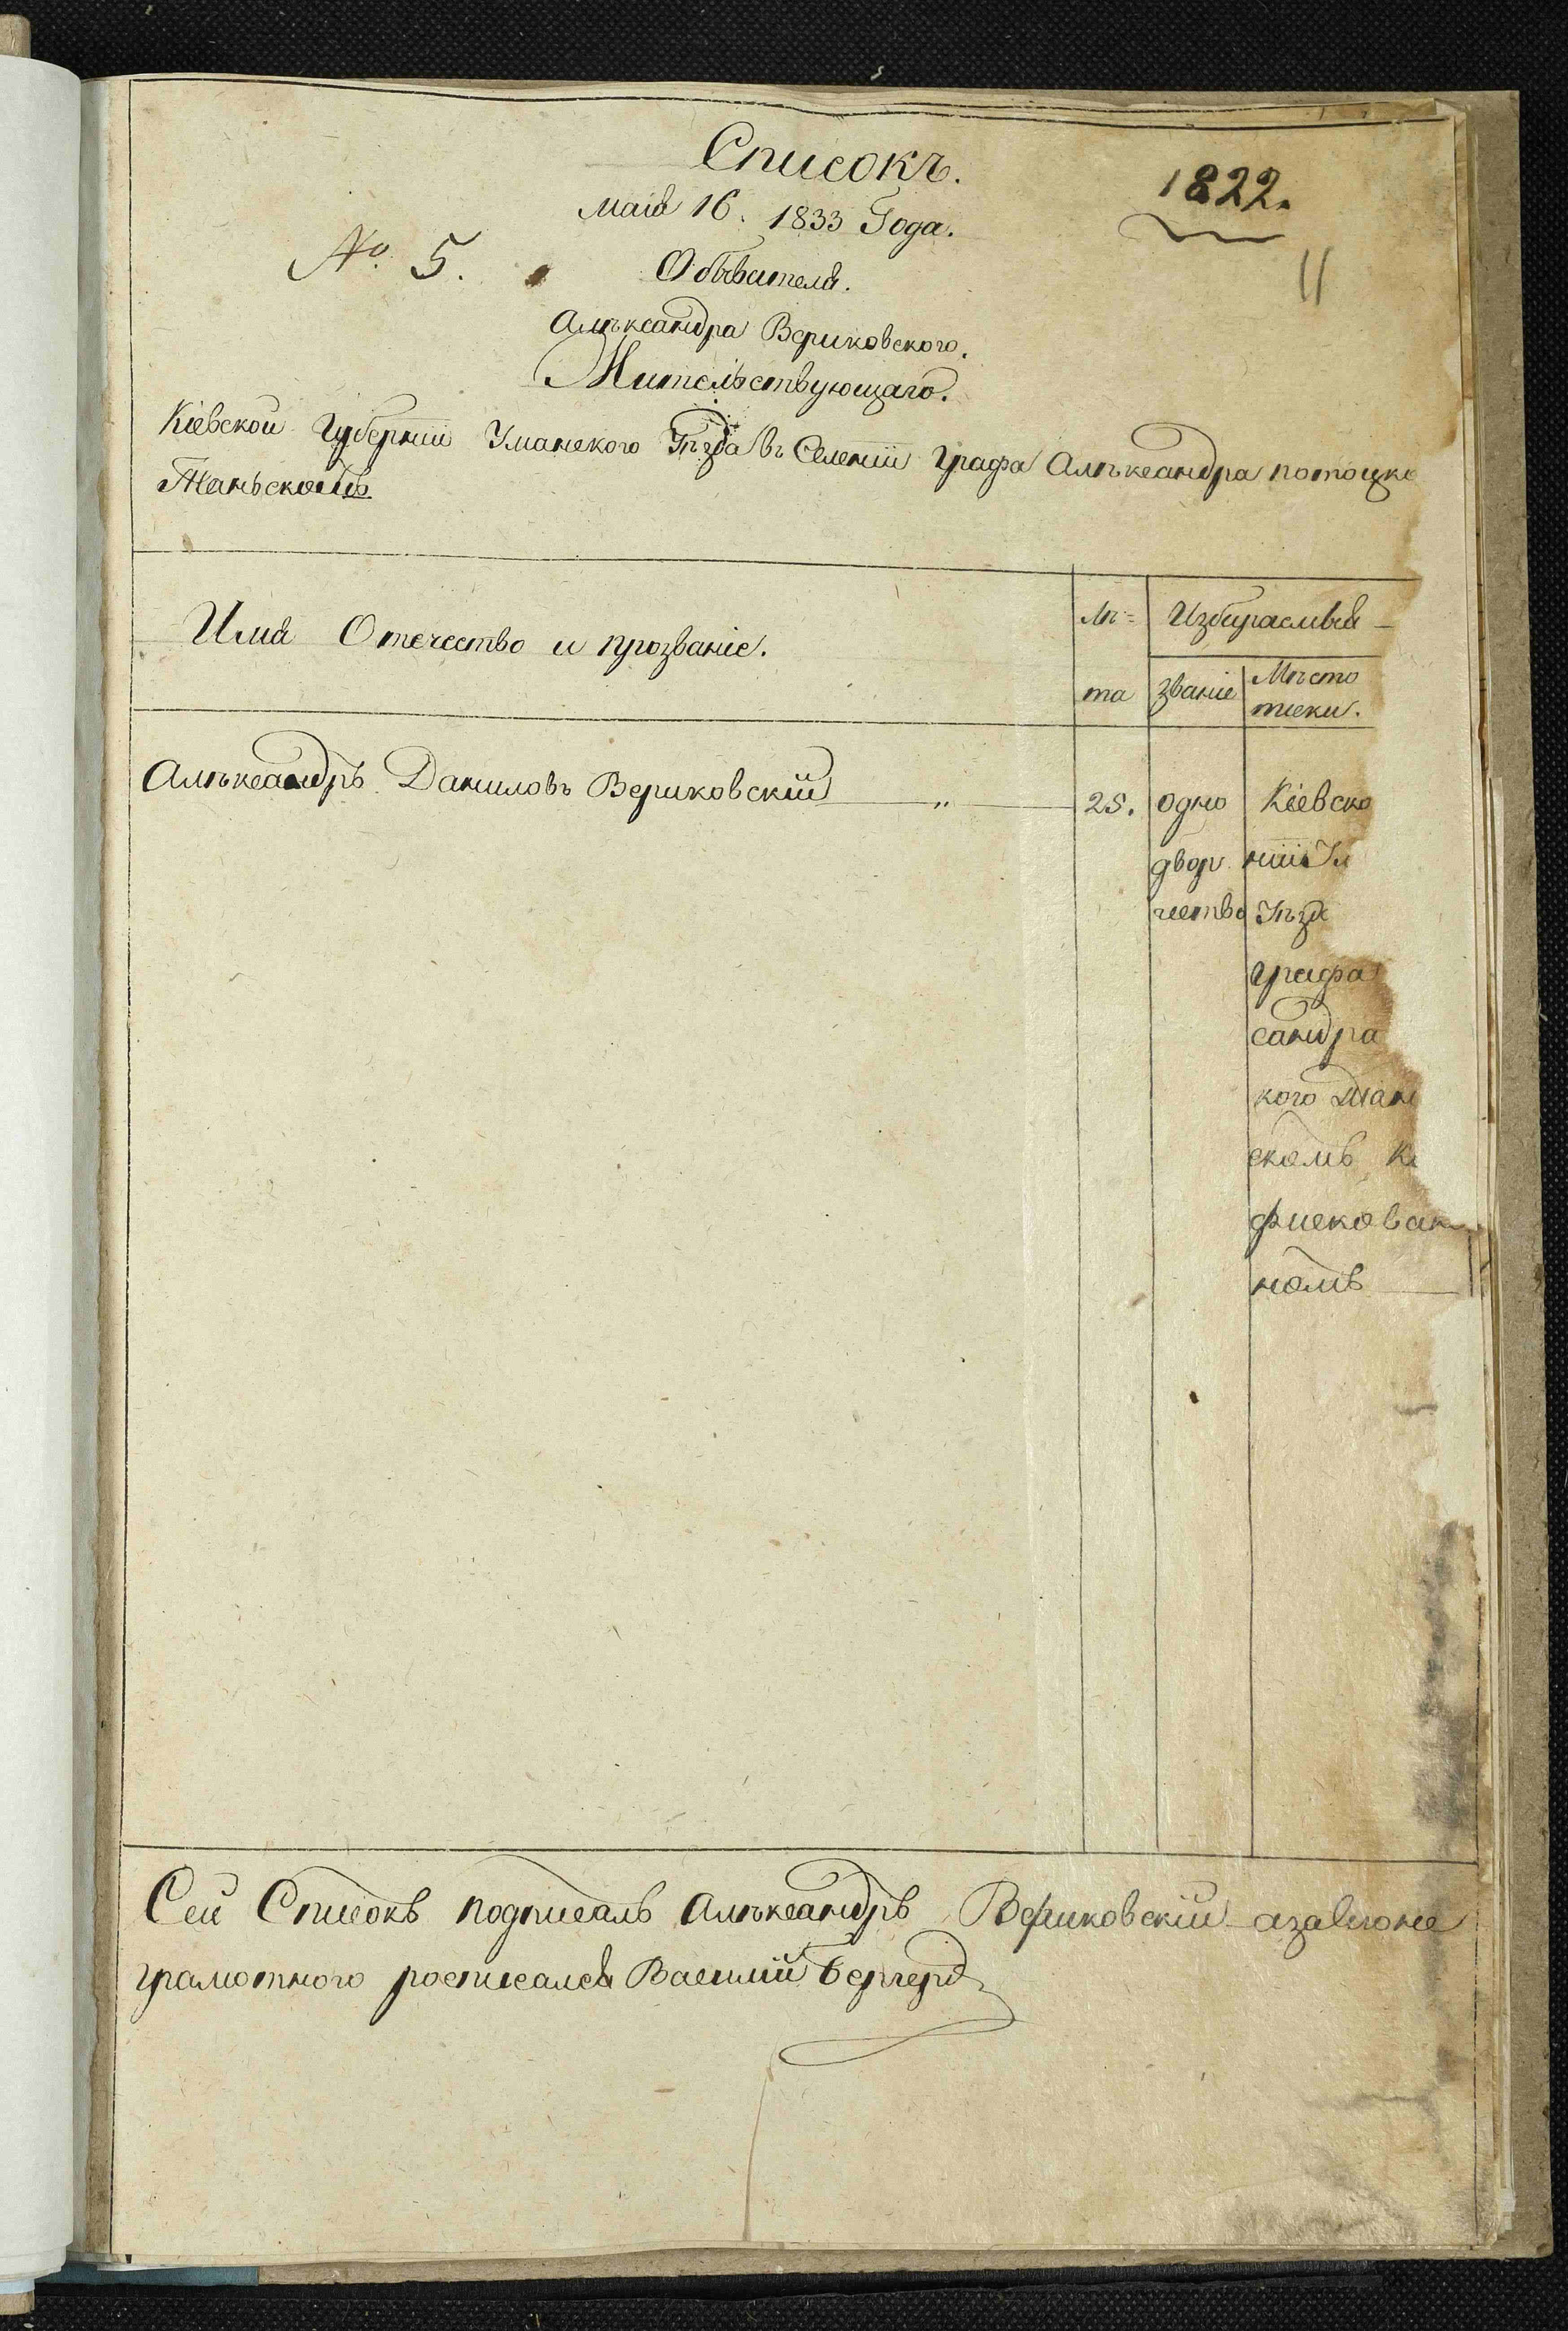 Списокъ.
1822.
маія 16. 1833 Года.
№ 5.
11
Обывателя.
Алѣксандра Вериковского.
Жительствующаго.
Кіевской Губерніи Уманского Уѣзда въ Селеніи Графа Алѣксандра потоцко
Таньскомъ
Имя Отечество и прозваніе.
лѣ=
та
Избираемыя -
званіе
Мѣсто
писки.
Алѣксандръ Даниловъ Вериковскій „
25.
одно
двор
чество
Кіевско
ніи Ум
Уѣзд
Графа
сандра
кого Тан
скомъ Ко
фискован
номъ
Сей Списокъ подписалъ Алѣксандръ Вериковскій азаегоне
грамотного росписался Василій